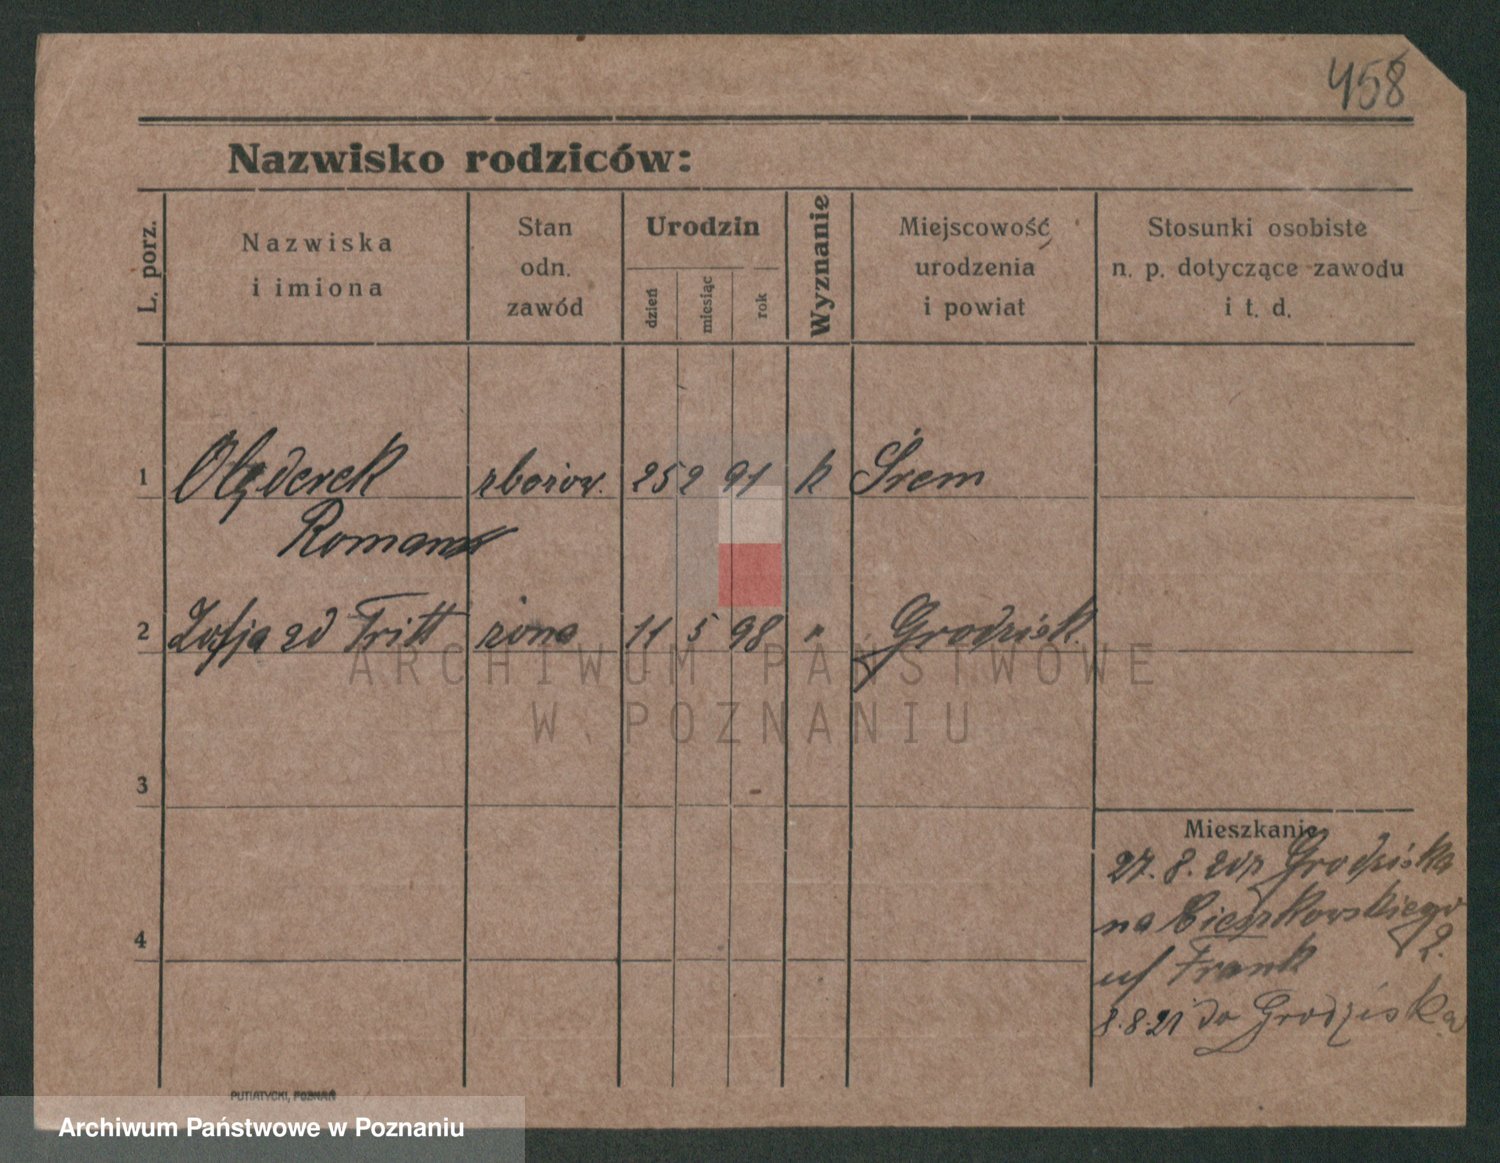 458
Nazwisko rodziców:
L. porz.
Nazwiska
i imiona
Stan
odn.
zawód
Urodzin
dzień
miesiąc
rok
Wyznanie
Miejscowość
urodzenia
i powiat
Stosunki osobiste
n. p. dotyczące zawodu
i t. d.
1 Olęderek 25 2 91 k Śrem
Roman
2 Zofja zd Tritt żona 11 5 98 " Grodzisk.
ARCHIWUM PAŃSTWOWE
W POZNANIU
3
Mieszkanie
27. 8. 20 z Grodziska
na Cieszkowskiego
2.
4
u/ Frank
8.8.21 do Grodziska
PUTIATYCKI, POZNAŃ
Archiwum Państwowe w Poznaniu